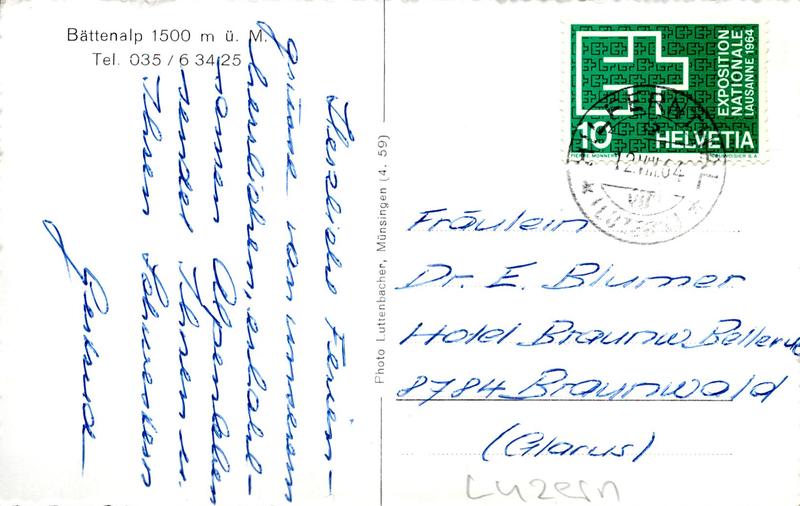 Bättenalp 1500 m ü. M.
Tel. 035 / 6 34 25
Herzliche Ferien-
grüsse von unserem
herrlichen, erhol-
samen Alpenleben
sendet Ihnen u.
Ihren Schwestern
Gertrud
Photo Luttenbacher, Münsingen (4. 59)
EXPOSITION
NATIONALE
LAUSANNE 1964
10 HELVETIA
12.VIII.64
VII
(LUZERN)
Fräulein
Dr. E. Blumer
Hotel Braunw. Bellevue
8784 Braunwald
(Glarus)
Luzern